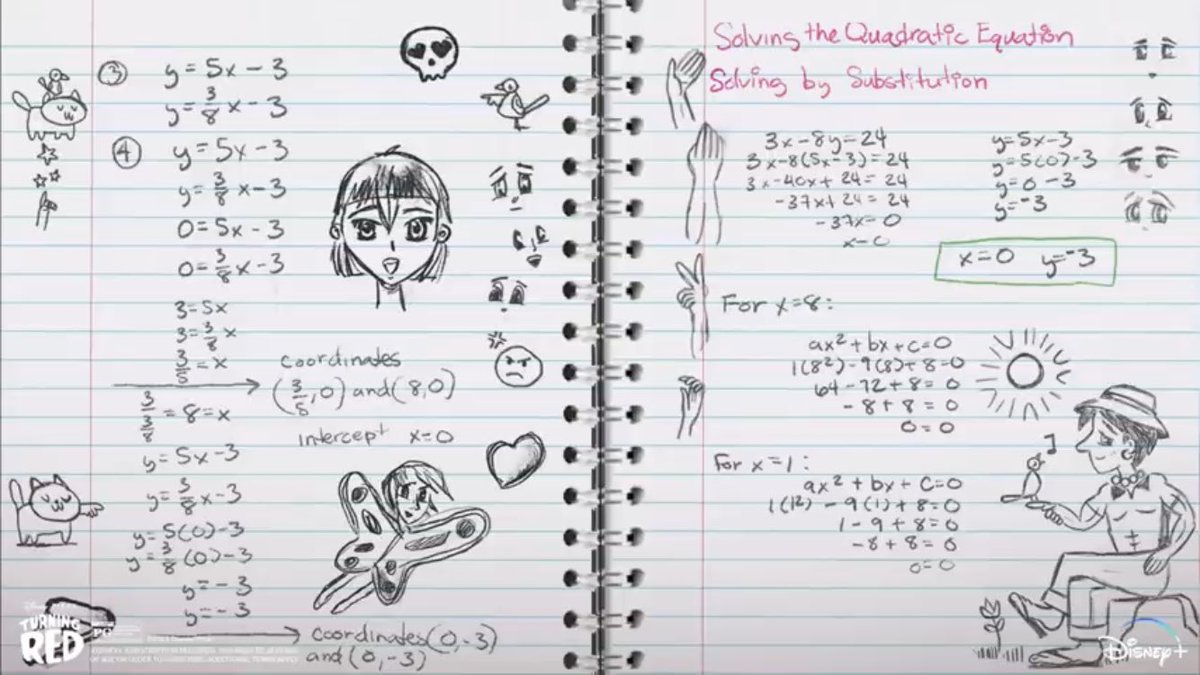 ③ y = 5x - 3
y = 3/8 x - 3
④ y = 5x - 3
y = 3/8 x - 3
0 = 5x - 3
0 = 3/8 x - 3
3 = 5x
3 = 3/8 x
3/5 = x
3/(3/8) = 8 = x
coordinates
(3/5, 0) and (8, 0)
intercept x = 0
y = 5x - 3
y = 3/8 x - 3
y = 5(0) - 3
y = 3/8 (0) - 3
y = - 3
y = - 3
coordinates (0, -3)
and (0, -3)
TURNING
RED
PG
Solving the Quadratic Equation
Solving by Substitution
3x - 8y = 24
3x - 8(5x - 3) = 24
3x - 40x + 24 = 24
- 37x + 24 = 24
- 37x = 0
x = 0
y = 5x - 3
y = 5(0) - 3
y = 0 - 3
y = -3
x = 0 y = -3
For x = 8:
ax² + bx + c = 0
1(8²) - 9(8) + 8 = 0
64 - 72 + 8 = 0
- 8 + 8 = 0
0 = 0
For x = 1:
ax² + bx + c = 0
1(1²) - 9(1) + 8 = 0
1 - 9 + 8 = 0
- 8 + 8 = 0
0 = 0
Disney+